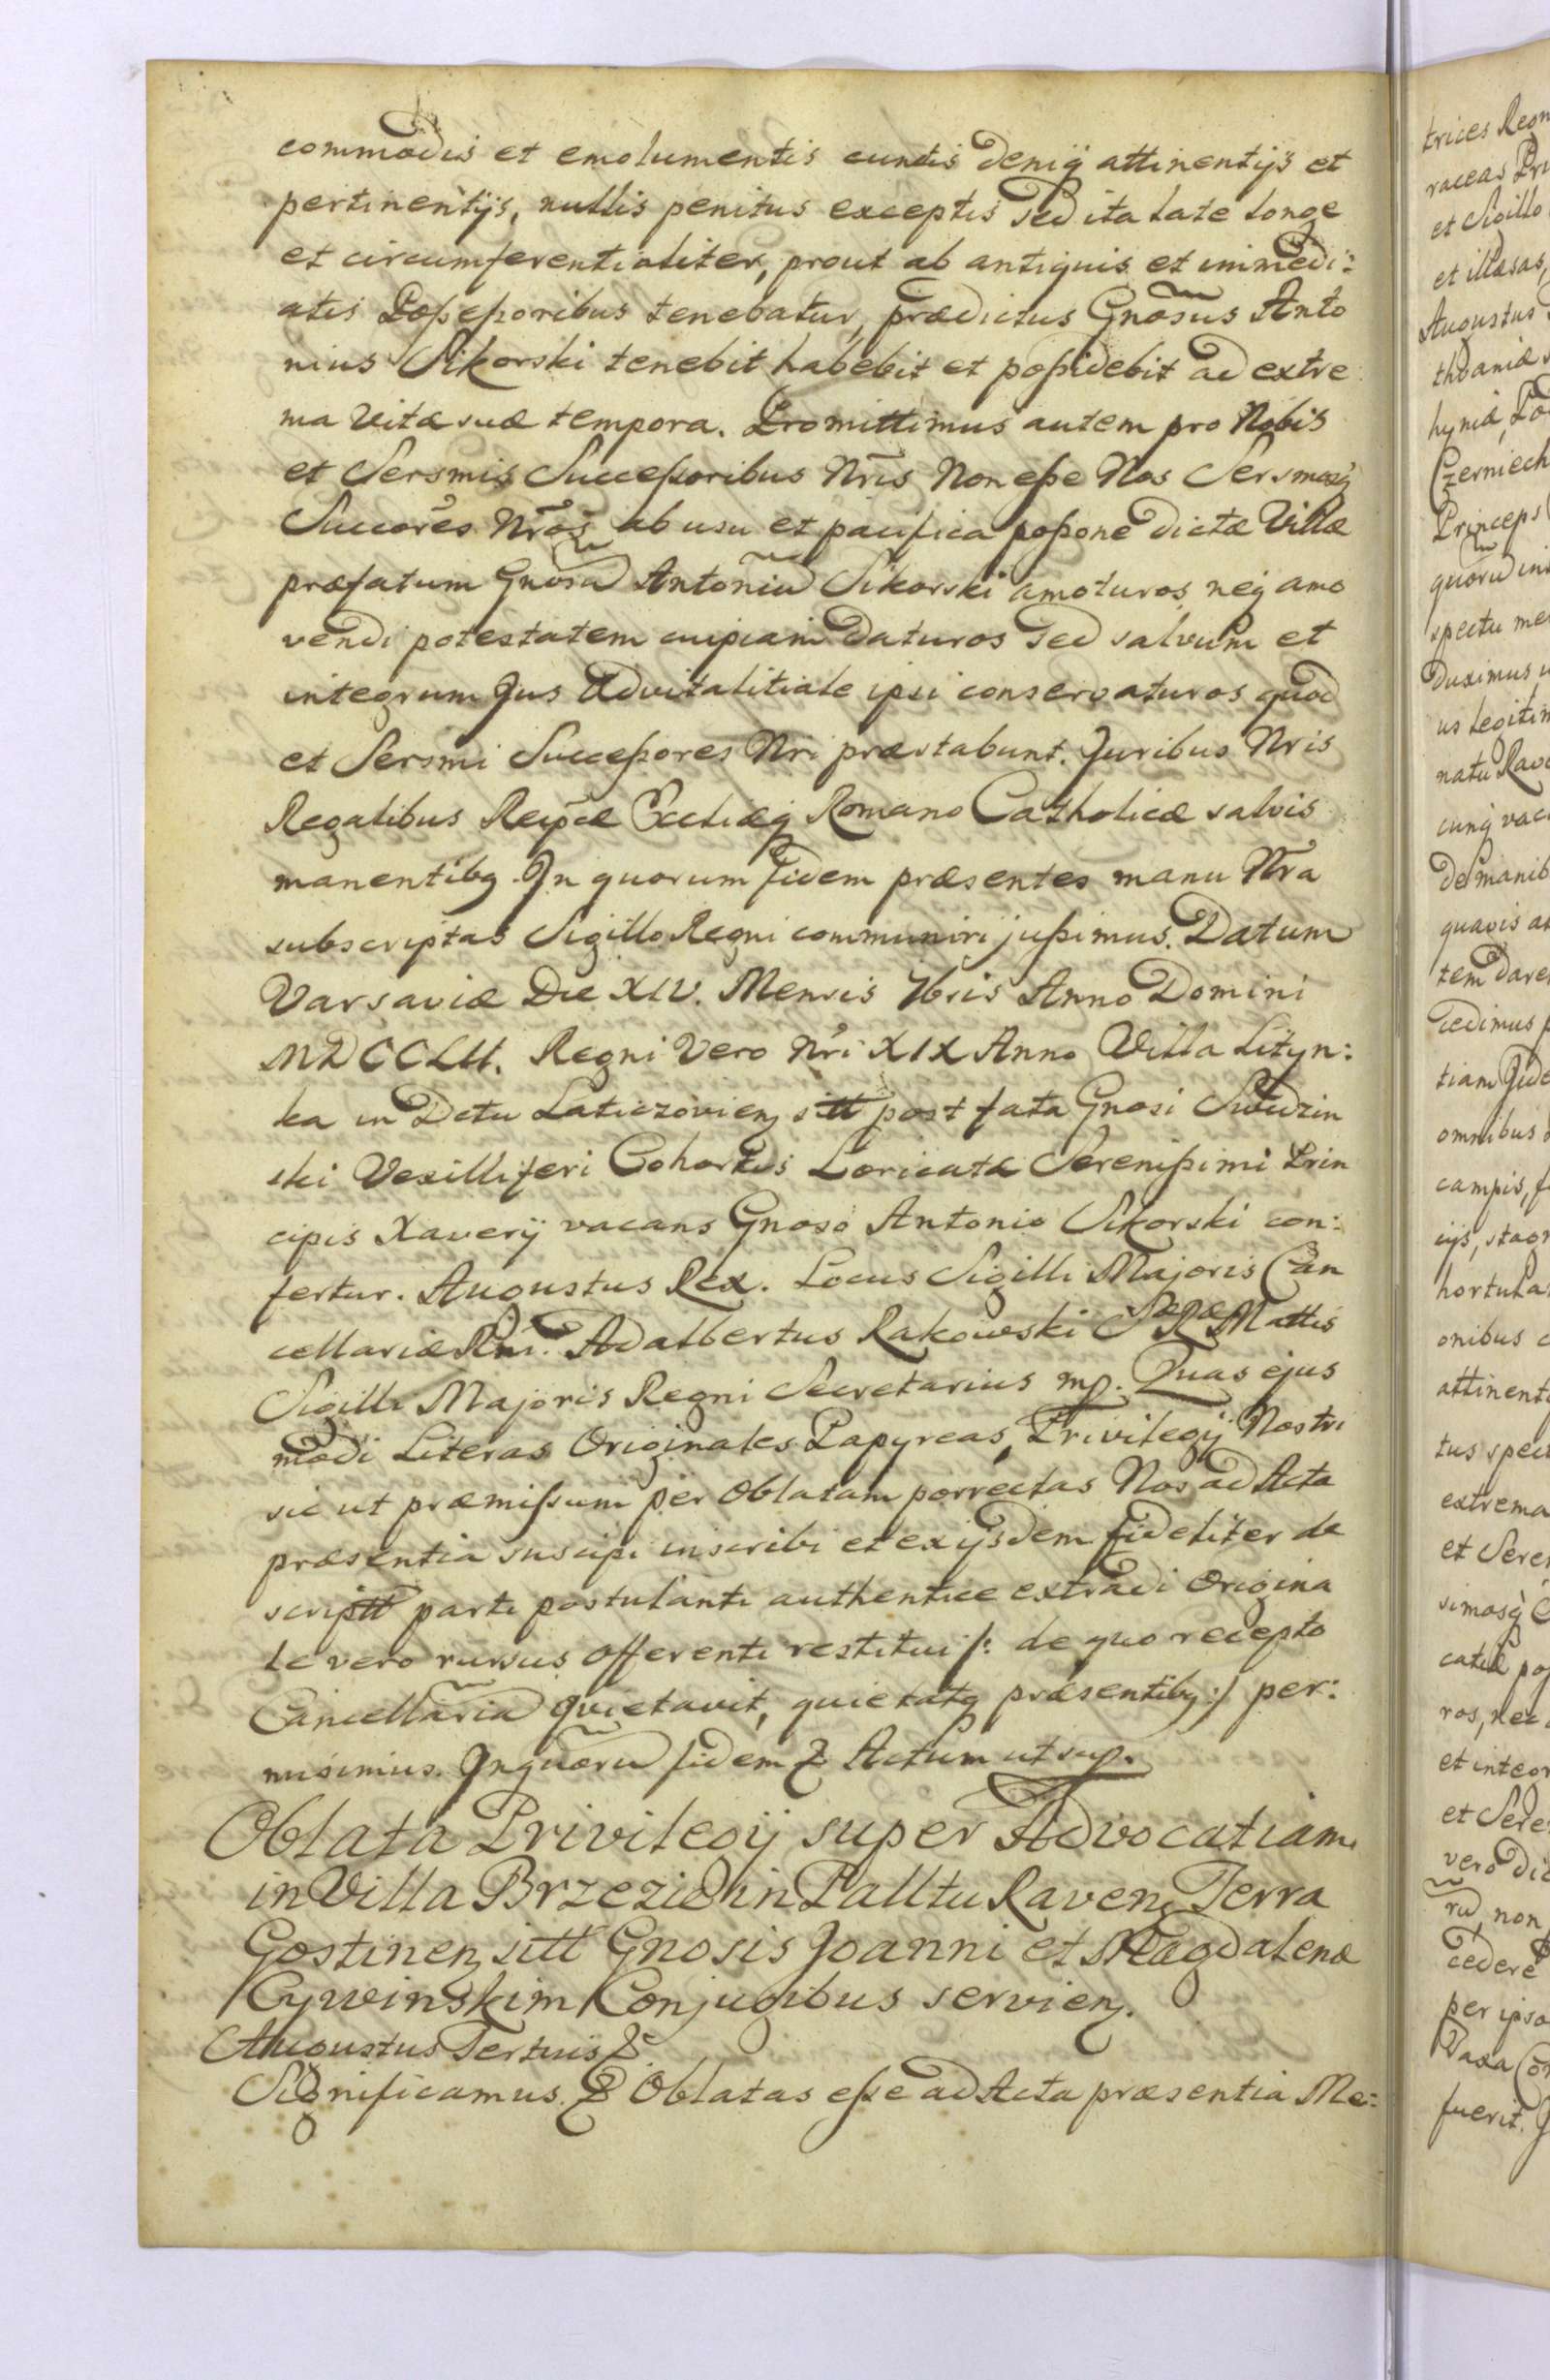 commodis et emolumentis cunctis deniq̃ attinentijs et
pertinentijs, nullis penitus exceptis sed ita late longe
et circumferentialiter, prout ab antiquis et immedi:
atis Possessoribus tenebatur, prædictus Gnosus Anto
nius Sikorski tenebit habebit et possidebit ad extre
ma vitæ suæ tempora. Promittimus autem pro Nobis
et Sersmis Successoribus Nris Non esse Nos Sersmosq̃
Succores Nros ab usu et pacifica possone dictæ Villæ
præfatum Gnosũ Antoniũ Sikorski amoturos neq̃ amo
vendi potestatem cuipiam daturos sed salvum et
integrum Jus Advitalitiale ipsi conservaturos quod
et Sersmi Successores Nri præstabunt. Juribus Nris
Regalibus Reipcæ Eccliæq̃ Romano Catholicæ salvis
manentibq. In quorum fidem præsentes manu Nra
subscriptas Sigillo Regni communiri jussimus. Datum
Varsaviæ Die XIV. Mensis 7bris Anno Domini
MDCCLII. Regni Vero Nri XIX Anno Villa Lityn:
ka in Dctu Laticzovien̨ sitt post fata Gnosi Swidzin
ski Vexilliferi Cohortis Loricatæ Serenissimi Prin
cipis Xaverij vacans Gnoso Antonio Sikorski con:
fertur. Augustus Rex. Locus Sigilli Majoris Can
cellariæ Rni. Adalbertus Rakowski SæRæMattis
Sigilli Majoris Regni Secretarius mp. Quas ejus
modi Literas Originales Papyreas, Privilegij Nostri
sic ut præmissum per Oblatam porrectas Nos ad Acta
præsentia suscipi inscribi et ex ijsdem fideliter de
scriptt parti postulanti authentice extradi Origina
le vero rursus Offerenti restitui /: de quo recepto
Cancellariã quietavit, quietatq præsentibq :/ per:
misimus. In quorũ fidem & Actum ut sup.
Oblata Privilegij super Advocatiam
in Villa Brzezie in Palltu Raven̨ Terra
Gostinen̨ sitt Gnosis Joanni et Magdalenæ
Cywinskim Conjugibus servien̨.
Augustus Tertius &
Significamus. & Oblatas esse ad Acta præsentia Me: